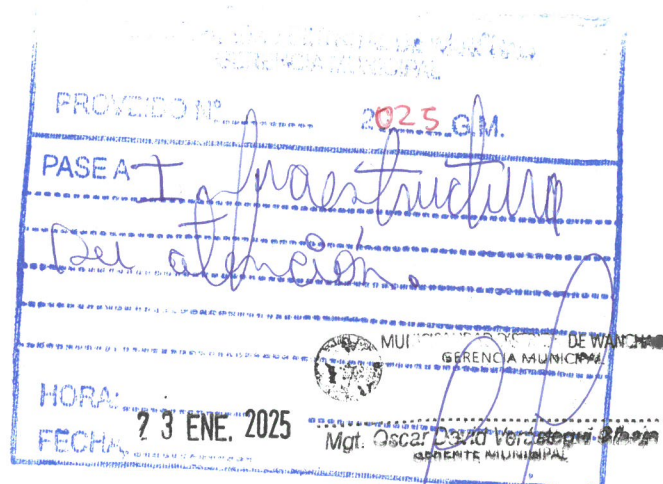 GERENCIA MUNICIPAL
PROVEIDO Nº 2025 G.M.
PASE A Infraestructura
Su atención.
MUNICIPALIDAD DISTRITAL DE WANCHAQ
GERENCIA MUNICIPAL
HORA:
FECHA 23 ENE. 2025
Mgt. Oscar David
GERENTE MUNICIPAL